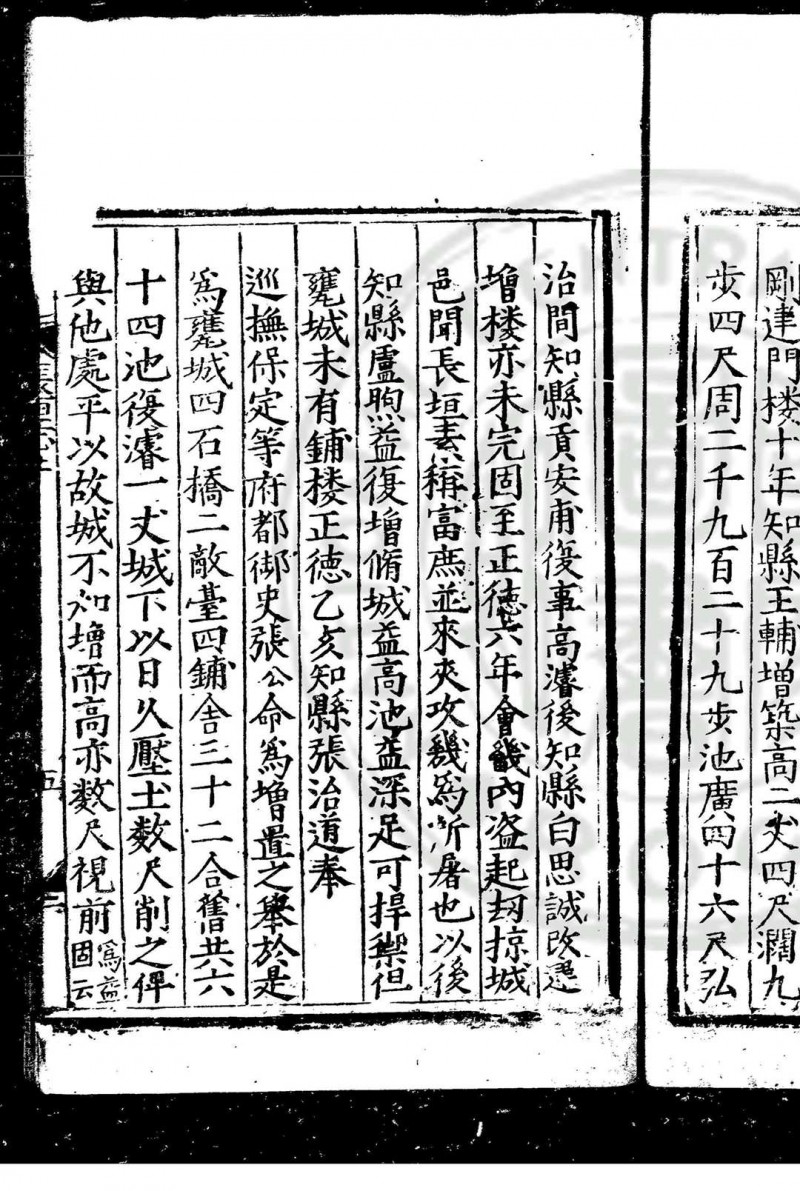 剛建門楼十年知縣王輔增築高二丈四尺濶九
步四尺周二千九百二十九步池廣四十六尺弘
治間知縣貢安甫復事高濬後知縣白思誠改造
增楼亦未完固至正德六年會畿内盗起刼掠城
邑聞長垣素稱富庶並來夾攻幾為所屠也以後
知縣盧煦益復增脩城益高池益深足可捍禦但
甕城未有鋪楼正德乙亥知縣張治道奉
巡撫保定等府都御史張公命爲增置之舉於是
爲甕城四石橋二敵臺四鋪舍三十二合舊共六
十四池復濬一丈城下以日久壓土數尺削之俾
與他處平以故城不加增而高亦數尺視前爲益固云
長垣志
五